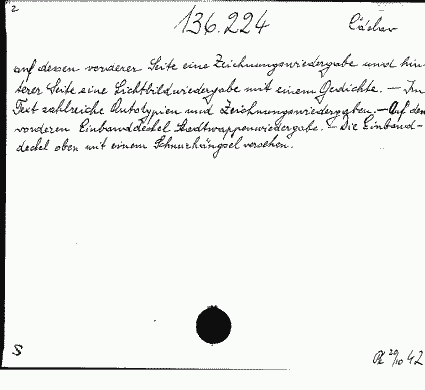 2
136.224
Cáslav
auf dessen vorderer Seite eine Zeichnungswiedergabe und hin-
terer Seite eine Lichtbildwiedergabe mit einem Gedichte. — Im
Text zahlreiche Autotypien und Zeichnungswiedergaben. — Auf dem
vorderen Einbanddeckel Stadtwappenwiedergabe. — Die Einband-
deckel oben mit einem Schnurhängsel versehen.
S
20/10 42